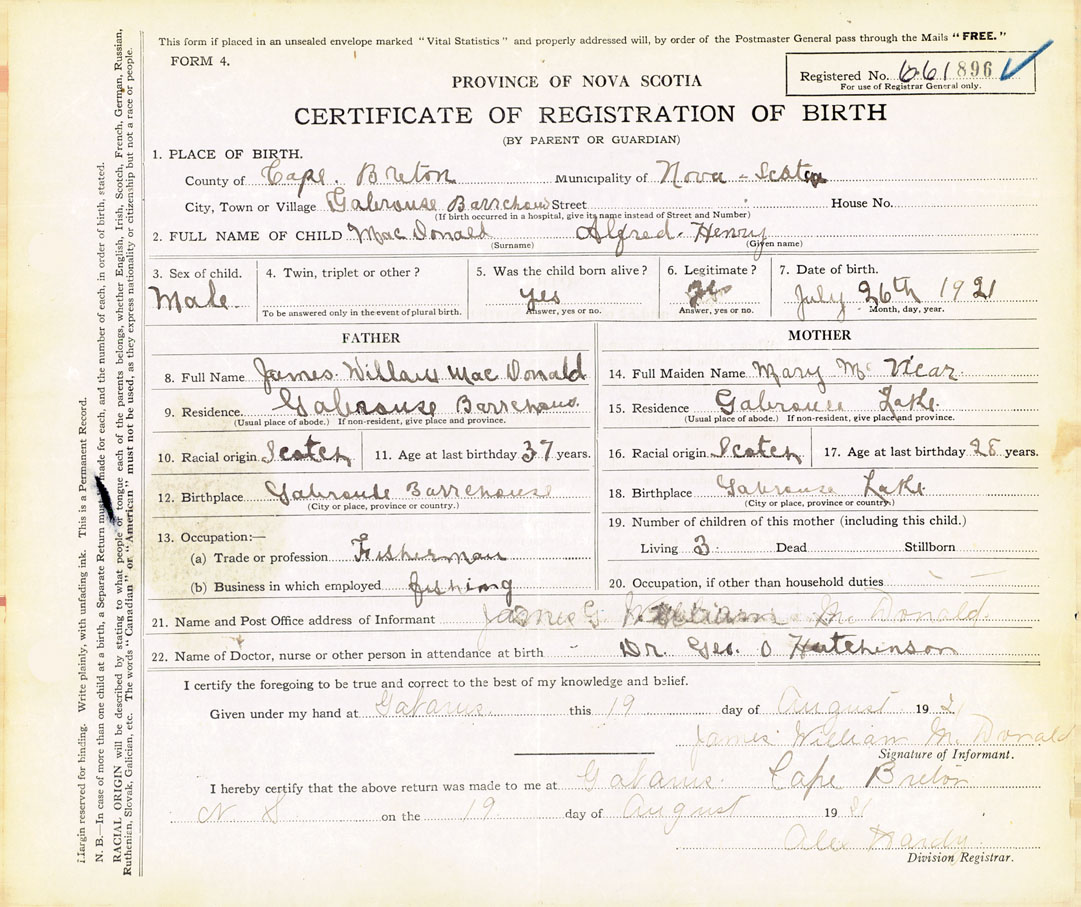 This form if placed in an unsealed envelope marked "Vital Statistics" and properly addressed will, by order of the Postmaster General pass through the Mails "FREE."
FORM 4.
Registered No. 661896
For use of Registrar General only.
PROVINCE OF NOVA SCOTIA
CERTIFICATE OF REGISTRATION OF BIRTH
(BY PARENT OR GUARDIAN)
1. PLACE OF BIRTH.
County of Cape. Breton Municipality of Nova - Scotia
City, Town or Village Gabrouse Barrehouse Street House No.
(If birth occurred in a hospital, give its name instead of Street and Number)
2. FULL NAME OF CHILD Mac Donald Alfred. Henry
(Surname) (Given name)
3. Sex of child. 4. Twin, triplet or other? 5. Was the child born alive? 6. Legitimate? 7. Date of birth.
Male. yes yes July 26th 1921
To be answered only in the event of plural birth. Answer, yes or no. Answer, yes or no. Month, day, year.
FATHER
8. Full Name James. William Mac Donald
9. Residence. Gabrouse Barrehouse.
(Usual place of abode.) If non-resident, give place and province.
10. Racial origin Scotch 11. Age at last birthday 37 years.
12. Birthplace Gabrouse Barrehouse
(City or place, province or country.)
13. Occupation:—
(a) Trade or profession Fisherman
(b) Business in which employed fishing
MOTHER
14. Full Maiden Name Mary Mc Vicar.
15. Residence Gabrouse Lake.
(Usual place of abode.) If non-resident, give place and province.
16. Racial origin Scotch 17. Age at last birthday 28 years.
18. Birthplace Gabrouse Lake.
(City or place, province or country.)
19. Number of children of this mother (including this child.)
Living 3. Dead Stillborn
20. Occupation, if other than household duties
21. Name and Post Office address of Informant James G. William Mc Donald.
22. Name of Doctor, nurse or other person in attendance at birth Dr. Geo. O Hutchinson
I certify the foregoing to be true and correct to the best of my knowledge and belief.
Given under my hand at Gabarus. this 19 day of August 1921
James William Mc Donald
Signature of Informant.
I hereby certify that the above return was made to me at Gabarus. Cape Breton
N. S on the 19. day of August 1921
Alex Hardy.
Division Registrar.
Margin reserved for binding. Write plainly, with unfading ink. This is a Permanent Record.
N. B.—In case of more than one child at a birth, a Separate Return must be made for each, and the number of each, in order of birth, stated.
RACIAL ORIGIN will be described by stating to what people or tongue each of the parents belongs, whether English, Irish, Scotch, French, German, Russian,
Ruthenian, Slovak, Galician, etc. The words "Canadian" or "American" must not be used, as they express nationality or citizenship but not a race or people.